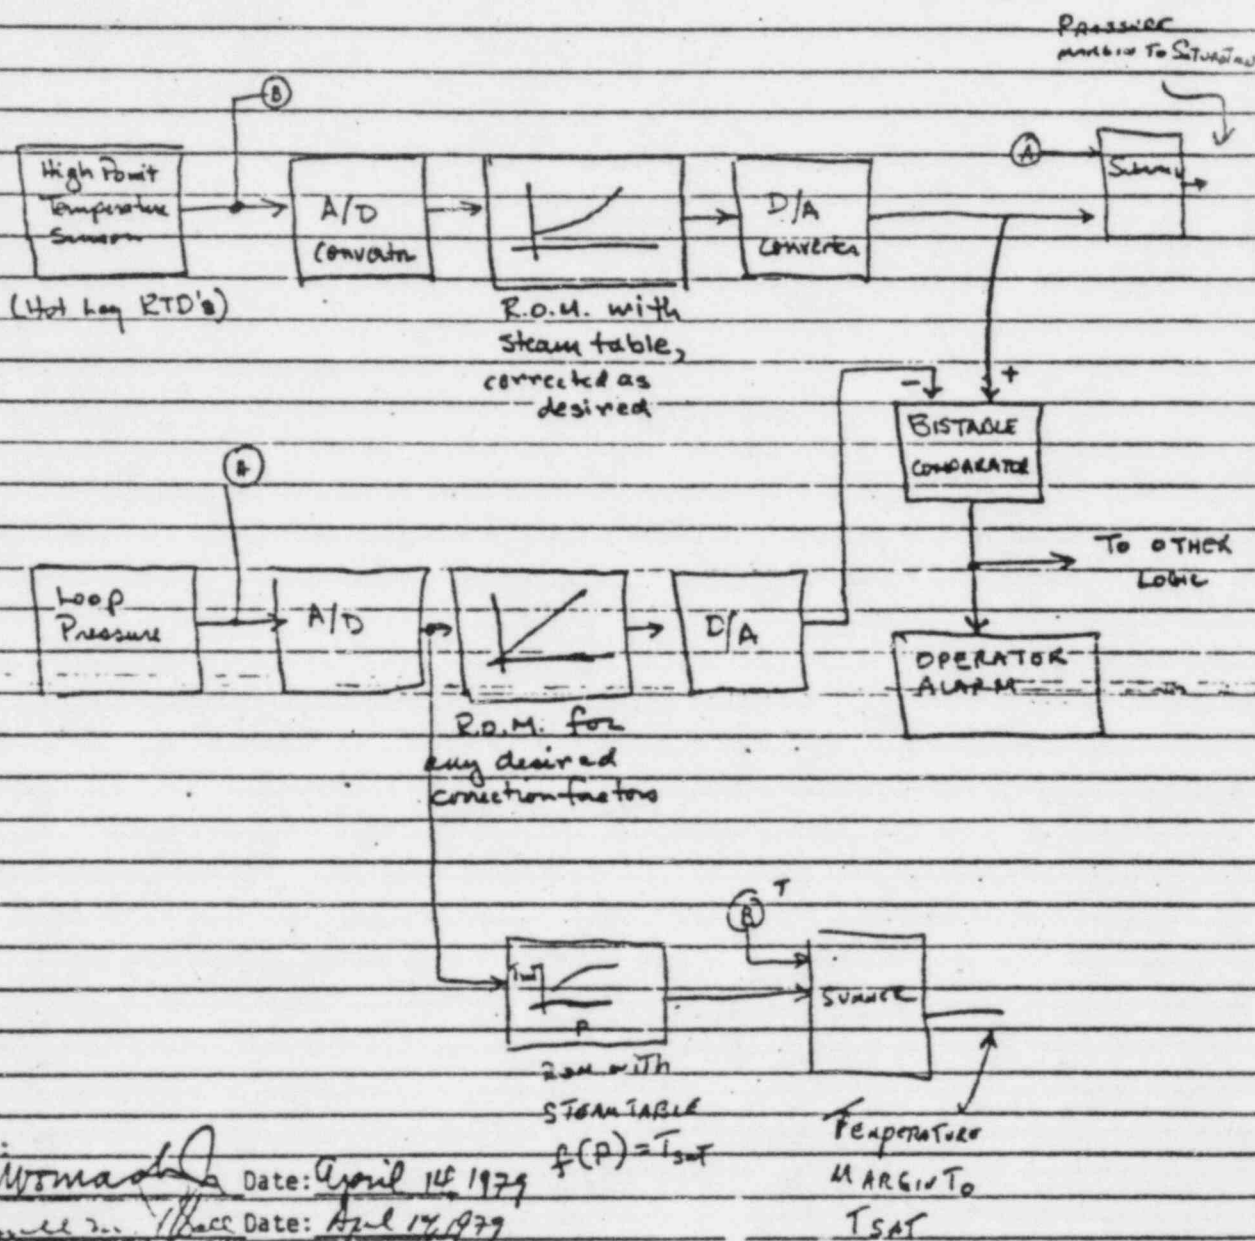 PRESSURE
MARGIN TO SATURATION
B
High Point
Temperature
Sensor
(Hot Leg RTD's)
A/D
Converter
R.O.M. with
steam table,
corrected as
desired
D/A
Converter
A
-
+
BISTABLE
COMPARATOR
TO OTHER
LOGIC
OPERATOR
ALARM
A
Loop
Pressure
A/D
R.O.M. for
any desired
correction factors
D/A
B T
Tsat
P
ROM with
STEAM TABLE
f(P) = TSAT
SUMMER
TEMPERATURE
MARGIN TO
TSAT
Date: April 14 1979
Date: April 14, 1979